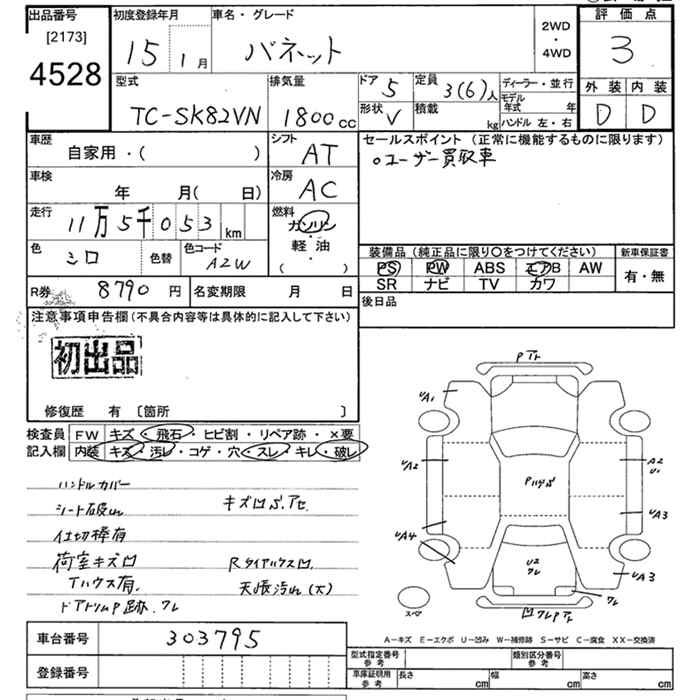 出品番号 初度登録年月 車名・グレード 2WD・4WD 評価点
[2173] 15年 1月 バネット 3
4528
型式 排気量 ドア 5 定員 3(6)人 ディーラー・並行 外装 内装
TC-SK82VN 1800cc 形状 V 積載 kg モデル年式 年 D D
ハンドル 左・右
車歴 シフト セールスポイント (正常に機能するものに限ります)
自家用・( ) AT 。ユーザー買取車
車検 冷房
年 月( 日) AC
走行 燃料
11万5千053km ガソリン
色 シロ 色替 色コード A2W 軽油
( )
装備品 (純正品に限り〇をつけてください) 新車保証書
PS PW ABS エアB AW 有・無
SR ナビ TV カワ
R券 8790円 名変期限 月 日 後日品
注意事項申告欄(不具合内容等は具体的に記入して下さい)
初出品
修復歴 有 〔箇所 〕
検査員 FW キズ・飛石・ヒビ割・リペア跡・×要
記入欄 内装 キズ・汚レ・コゲ・穴・スレ・キレ・破レ
ハンドルカバー
シート破れ キズ凹
仕切棒有
荷室キズ凹 Rタイヤハウス凹
Tハウス有. 天張汚れ(大)
ドアトリムP跡.ワレ
PTr
UA1
UA2
UA4
A2
U1
UA3
UA3
U2
ワレ
ワレ
凹ワレPTr
スペア
A－キズ E－エクボ U－凹み W－補修跡 S－サビ C－腐食 XX－交換済
車台番号 303795
登録番号
型式指定番号 参考 類別区分番号 参考
車庫証明用 参考 長さ cm 幅 cm 高さ cm